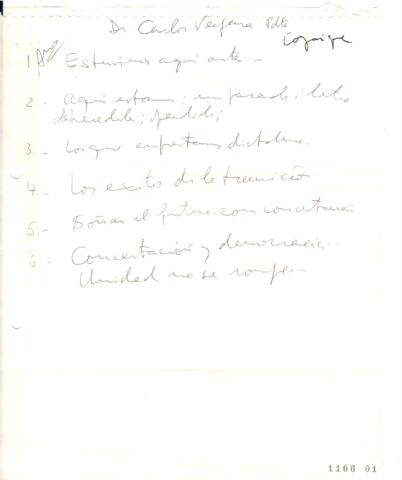 Dr Carlos Vergara Pdte
Iquique
1.- Estuvimos aquí ante...
2.- Aquí estamos: un pasado; luto
3.- Los que enfrentamos dictadura.
4.- Los éxitos de la transición.
5.- Soñar el futuro con
6.- Concertación y democracia...
Unidad no se rompe...
1106 01